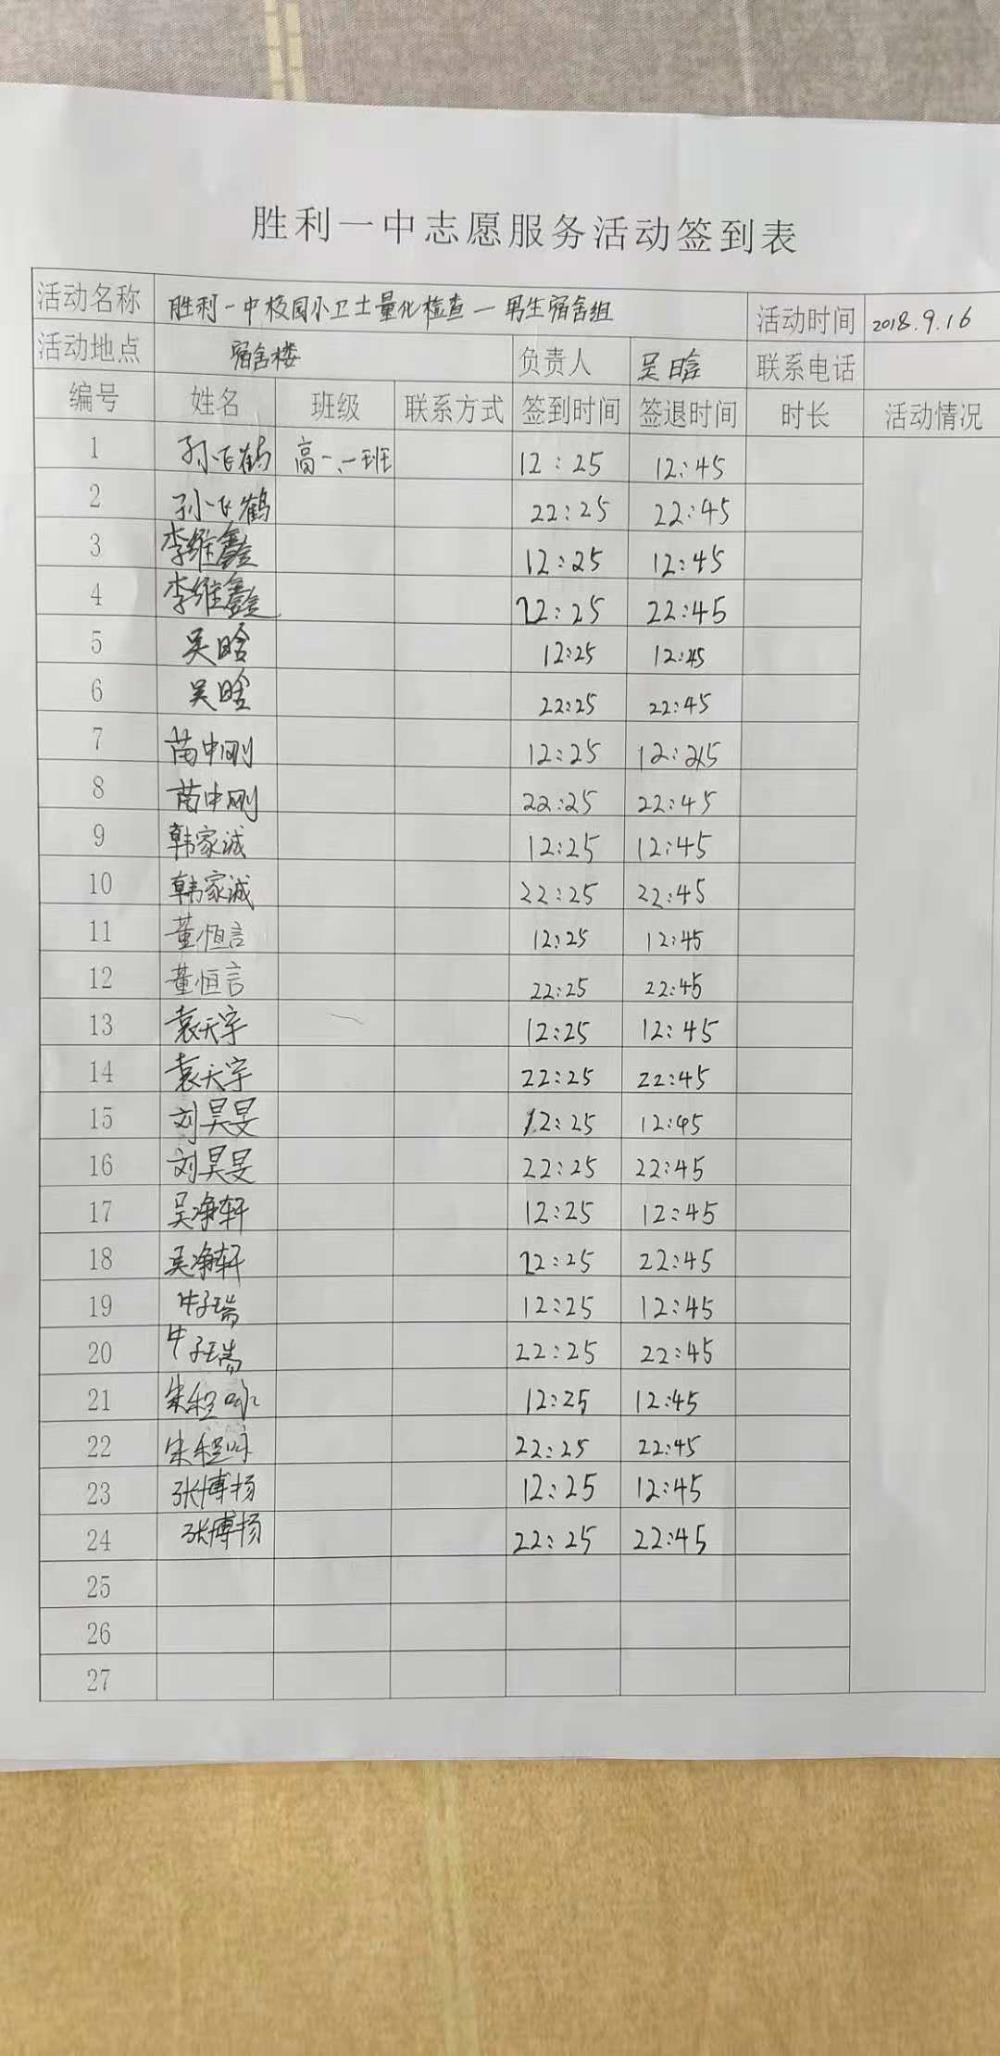 胜利一中志愿服务活动签到表
活动名称 胜利一中校园小卫士量化检查—男生宿舍组 活动时间 2018.9.16
活动地点 宿舍楼 负责人 吴晗 联系电话
编号 姓名 班级 联系方式 签到时间 签退时间 时长 活动情况
1 孙飞鹤 高一、一班 12:25 12:45
2 孙飞鹤 22:25 22:45
3 李维鑫 12:25 12:45
4 李维鑫 22:25 22:45
5 吴晗 12:25 12:45
6 吴晗 22:25 22:45
7 苗中刚 12:25
8 苗中刚 22:25 22:45
9 韩家诚 12:25 12:45
10 韩家诚 22:25 22:45
11 董恒言 12:25 12:45
12 董恒言 22:25 22:45
13 袁天宇 12:25 12:45
14 袁天宇 22:25 22:45
15 刘昊旻 12:25 12:45
16 刘昊旻 22:25 22:45
17 吴净轩 12:25 12:45
18 吴净轩 22:25 22:45
19 牛子瑞 12:25 12:45
20 牛子瑞 22:25 22:45
21 12:25 12:45
22 22:25 22:45
23 张博扬 12:25 12:45
24 张博扬 22:25 22:45
25
26
27